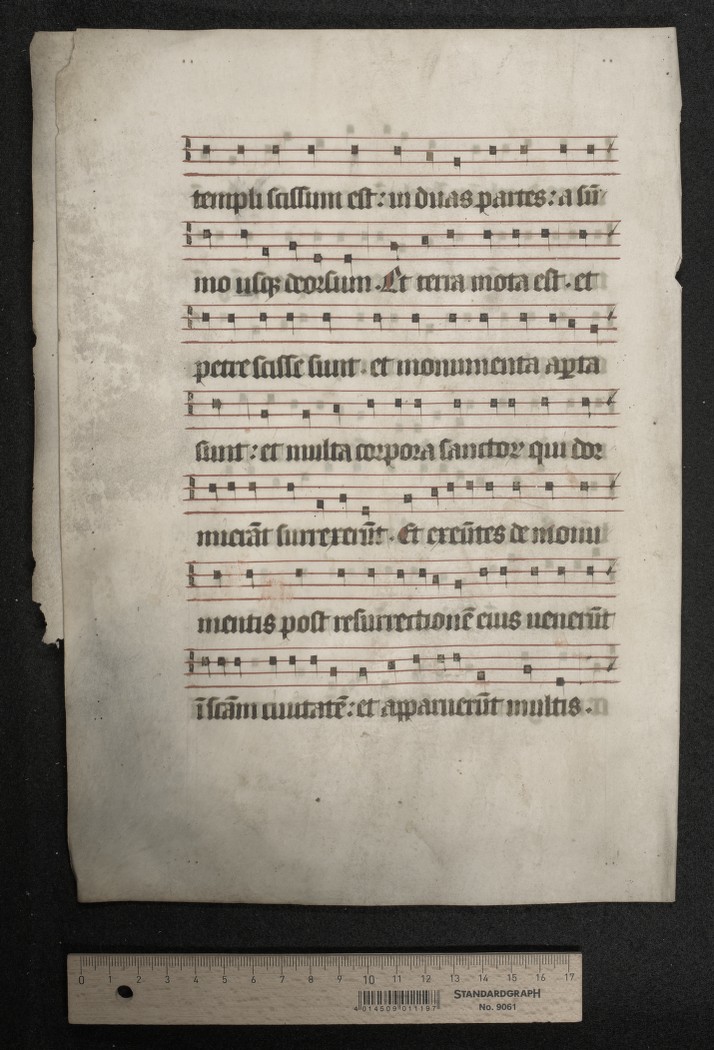 templi scissum est: in duas partes: a sũ
mo usqꝫ deorsum. Et terra mota est. et
petre scisse sunt. et monumenta aꝑta
sunt: et multa corpora sanctoꝝ qui dor
mierãt surrexerũt. Et exeũtes de monu
mentis post resurrectionẽ eius uenerũt
ĩ scãm ciuitatẽ: et apparuerũt multis.
0 1 2 3 4 5 6 7 8 9 10 11 12 13 14 15 16 17
STANDARDGRAPH
No. 9061
4 014509 011197